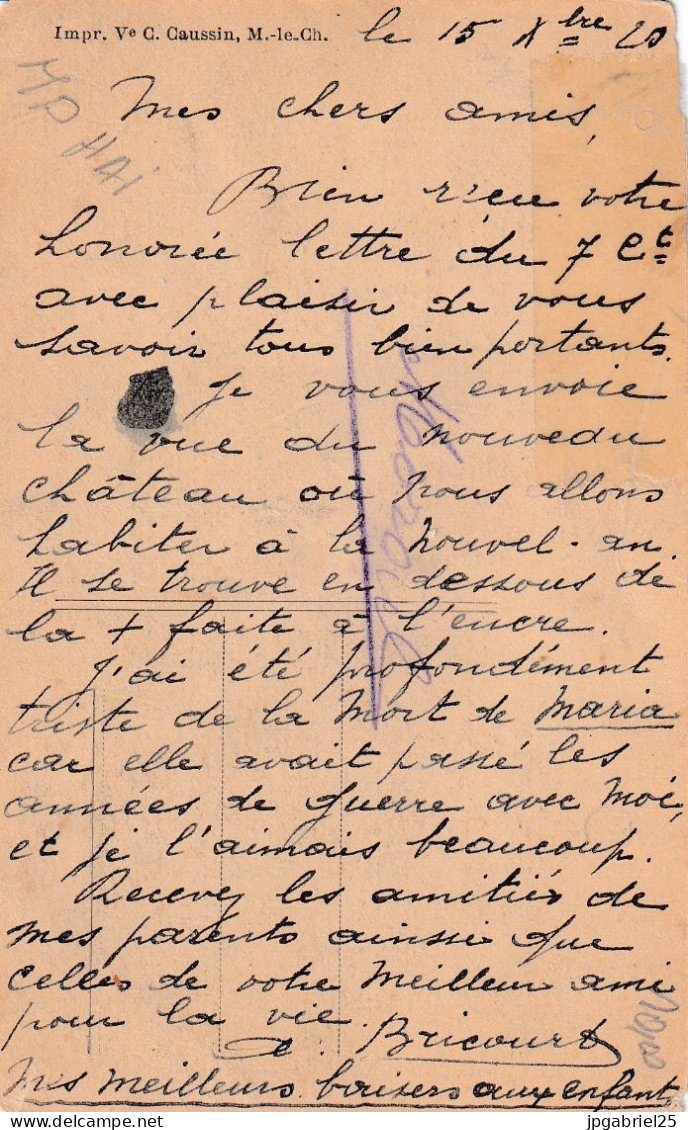 Impr. Ve C. Caussin, M.-le-Ch.
le 15 Xbre 20
MP
HAI
Mes chers amis,
Bien reçu votre
honorée lettre du 7 ct
avec plaisir de vous
savoir tous bien portants.
Je vous envoie
la vue du nouveau
château où nous allons
habiter à la nouvel-an.
Il se trouve en dessous de
la + faite à l'encre.
J'ai été profondément
triste de la mort de Maria
car elle avait passé les
années de guerre avec moi,
et je l'aimais beaucoup.
Recevez les amitiés de
mes parents ainssi que
celles de votre meilleur ami
pour la vie.
Bricourt
Mes meilleurs baisers aux enfants.
10,00
www.delcampe.net
jpgabriel25